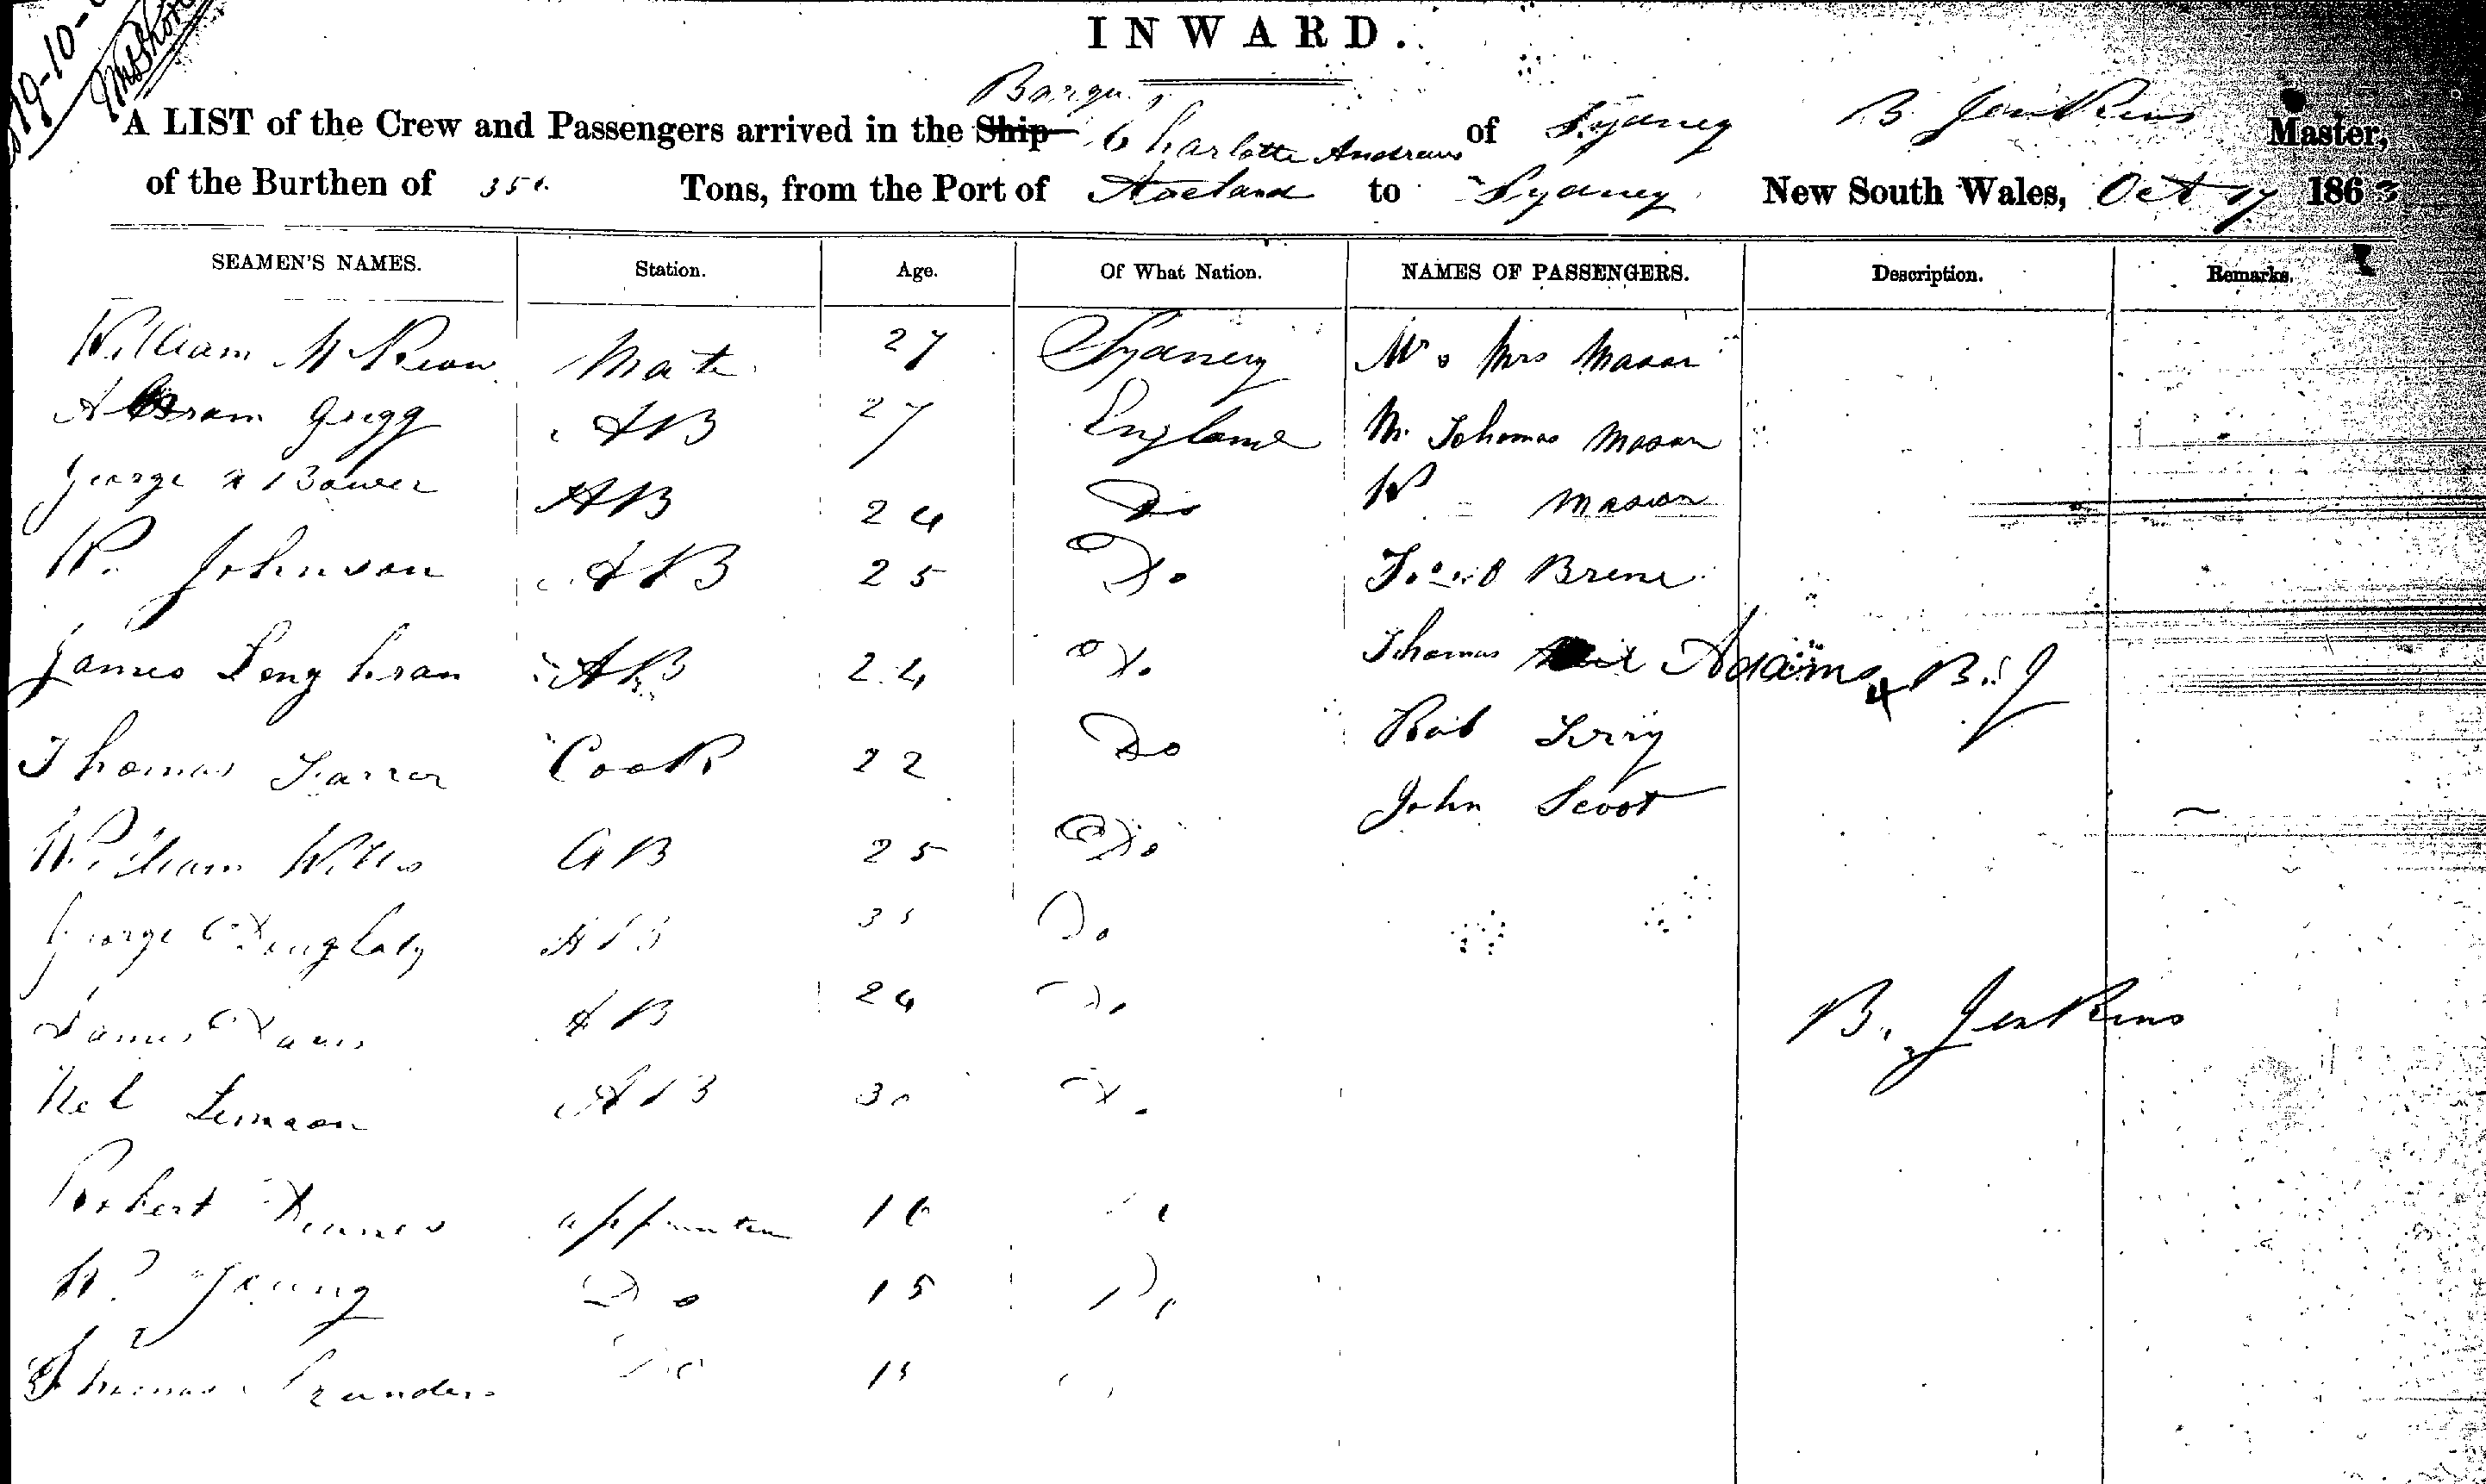 19-10-
INWARD.
Barque
A LIST of the Crew and Passengers arrived in the Ship Charlotte Andrews of Sydney B Jenkins Master,
of the Burthen of 35 Tons, from the Port of to Sydney New South Wales, Oct 17 1863
SEAMEN'S NAMES. Station. Age. Of What Nation. NAMES OF PASSENGERS. Description. Remarks.
William Mate 27 Sydney Mr & Mrs Mason
Abram Grigg AB 27 England Mr Thomas Mason
George Bower AB 24 Do W Mason
W. Johnson AB 25 Do Brene
James AB 24 Do Thomas Adams B.J
Thomas Farrer Cook 22 Do Rob Terry
John Scoot
William Wills AB 25 Do
George AB 35 Do
James Davis AB 24 Do
Lemson AB 30 Do
Robert 16
W. Young Do 15 Do
Thomas Saunders Do 15
B. Jenkins